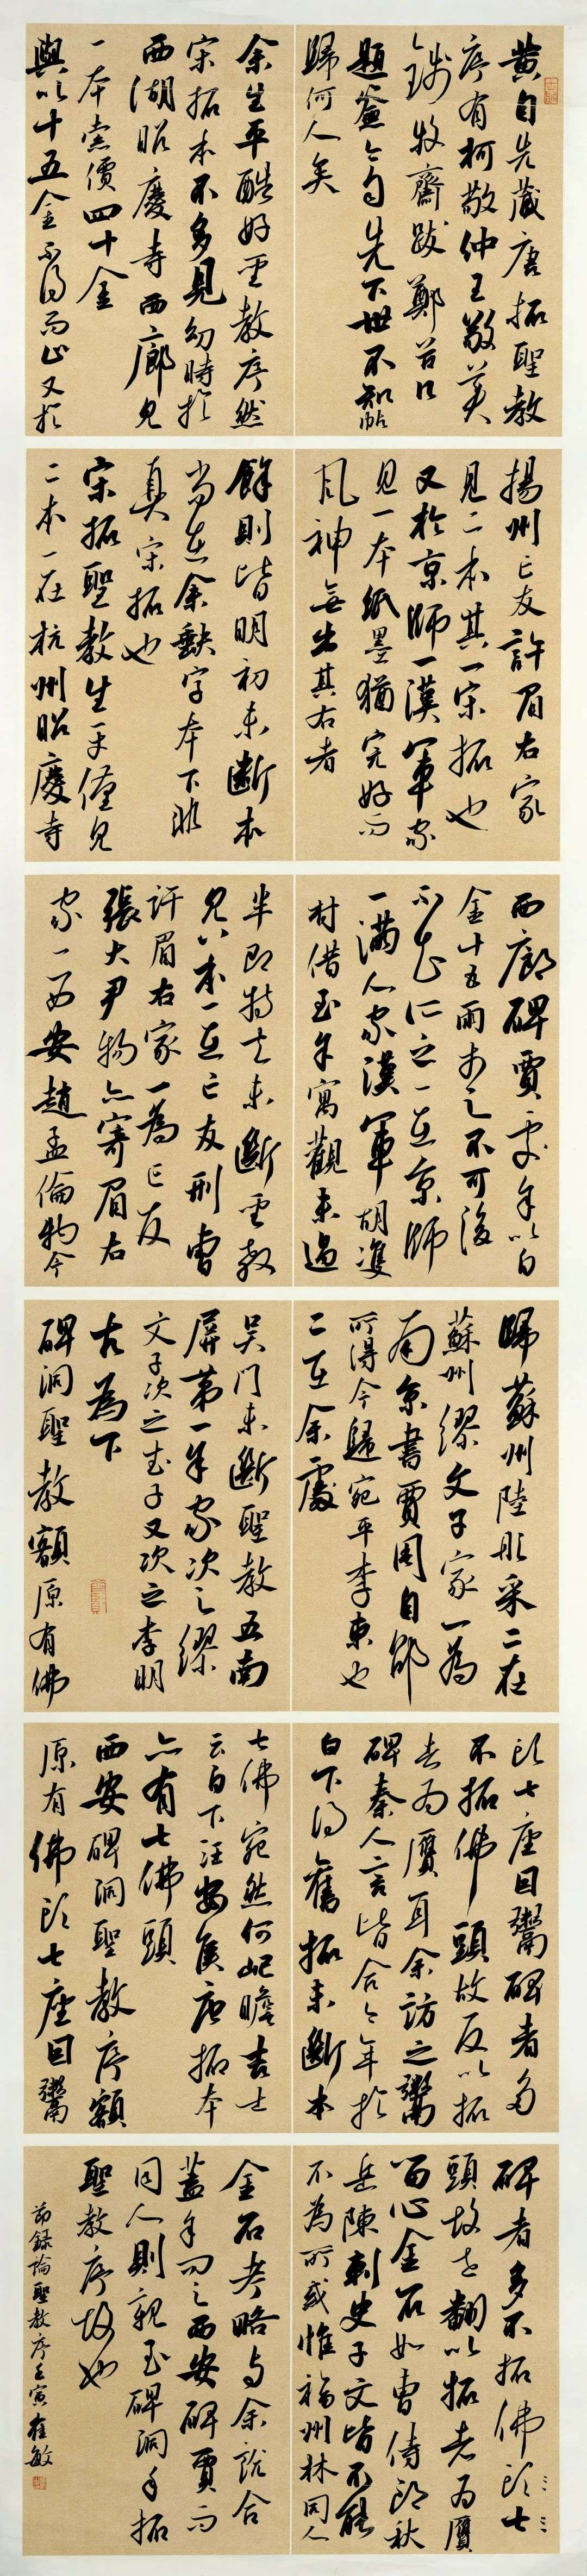 黄自先藏唐拓聖教
序有柯敬仲王敬美
錢牧齋跋鄭谷口
題簽谷口先下世不知帖
歸何人矣
余生平酷好聖教序然
宋拓本不多見幼時於
西湖昭慶寺西廊見
一本索價四十金
與以十五金不得而止又於
揚州亡友許眉右家
見二本其一宋拓也
又於京師一漢軍家
見一本紙墨猶完好而
風神無出其右者
餘則皆明初未斷本
尚在余數字本下非
真宋拓也
宋拓聖教生平僅見
二本一在杭州昭慶寺
西廊碑賈處余以白
金十五兩市之不可後
不知所之一在京師
一滿人家漢軍胡進
村借至余寓觀未過
半即持去未斷聖教
見八本一在亡友刑曹
許眉右家一為亡友
張大尹物亦寄眉右
家一西安趙孟倫物今
歸蘇州陸彤采二在
蘇州繆文子家一為
南京書賈周自邰
所得今歸宛平李東也
二在余處
吳門未斷聖教五南
屏第一余家次之繆
文子次之武子又次之李明
古為下
碑洞聖教額原有佛
頭七座因鬻碑者多
不拓佛頭故反以拓
者為贋耳余訪之鬻
碑秦人言皆合今年於
白下得舊拓未斷本
七佛宛然何屺瞻吉士
云白下汪安侯唐拓本
亦有七佛頭
西安碑洞聖教序額
原有佛頭七座因鬻
碑者多不拓佛頭七
頭故世翻以拓者為贋
留心金石如曹侍郎秋
岳陳刺史子文皆不能
不為所惑惟福州林同人
金石考略與余說合
蓋余問之西安碑賈而
同人則親至碑洞手拓
聖教序故也
節錄論聖教序壬寅崔敏